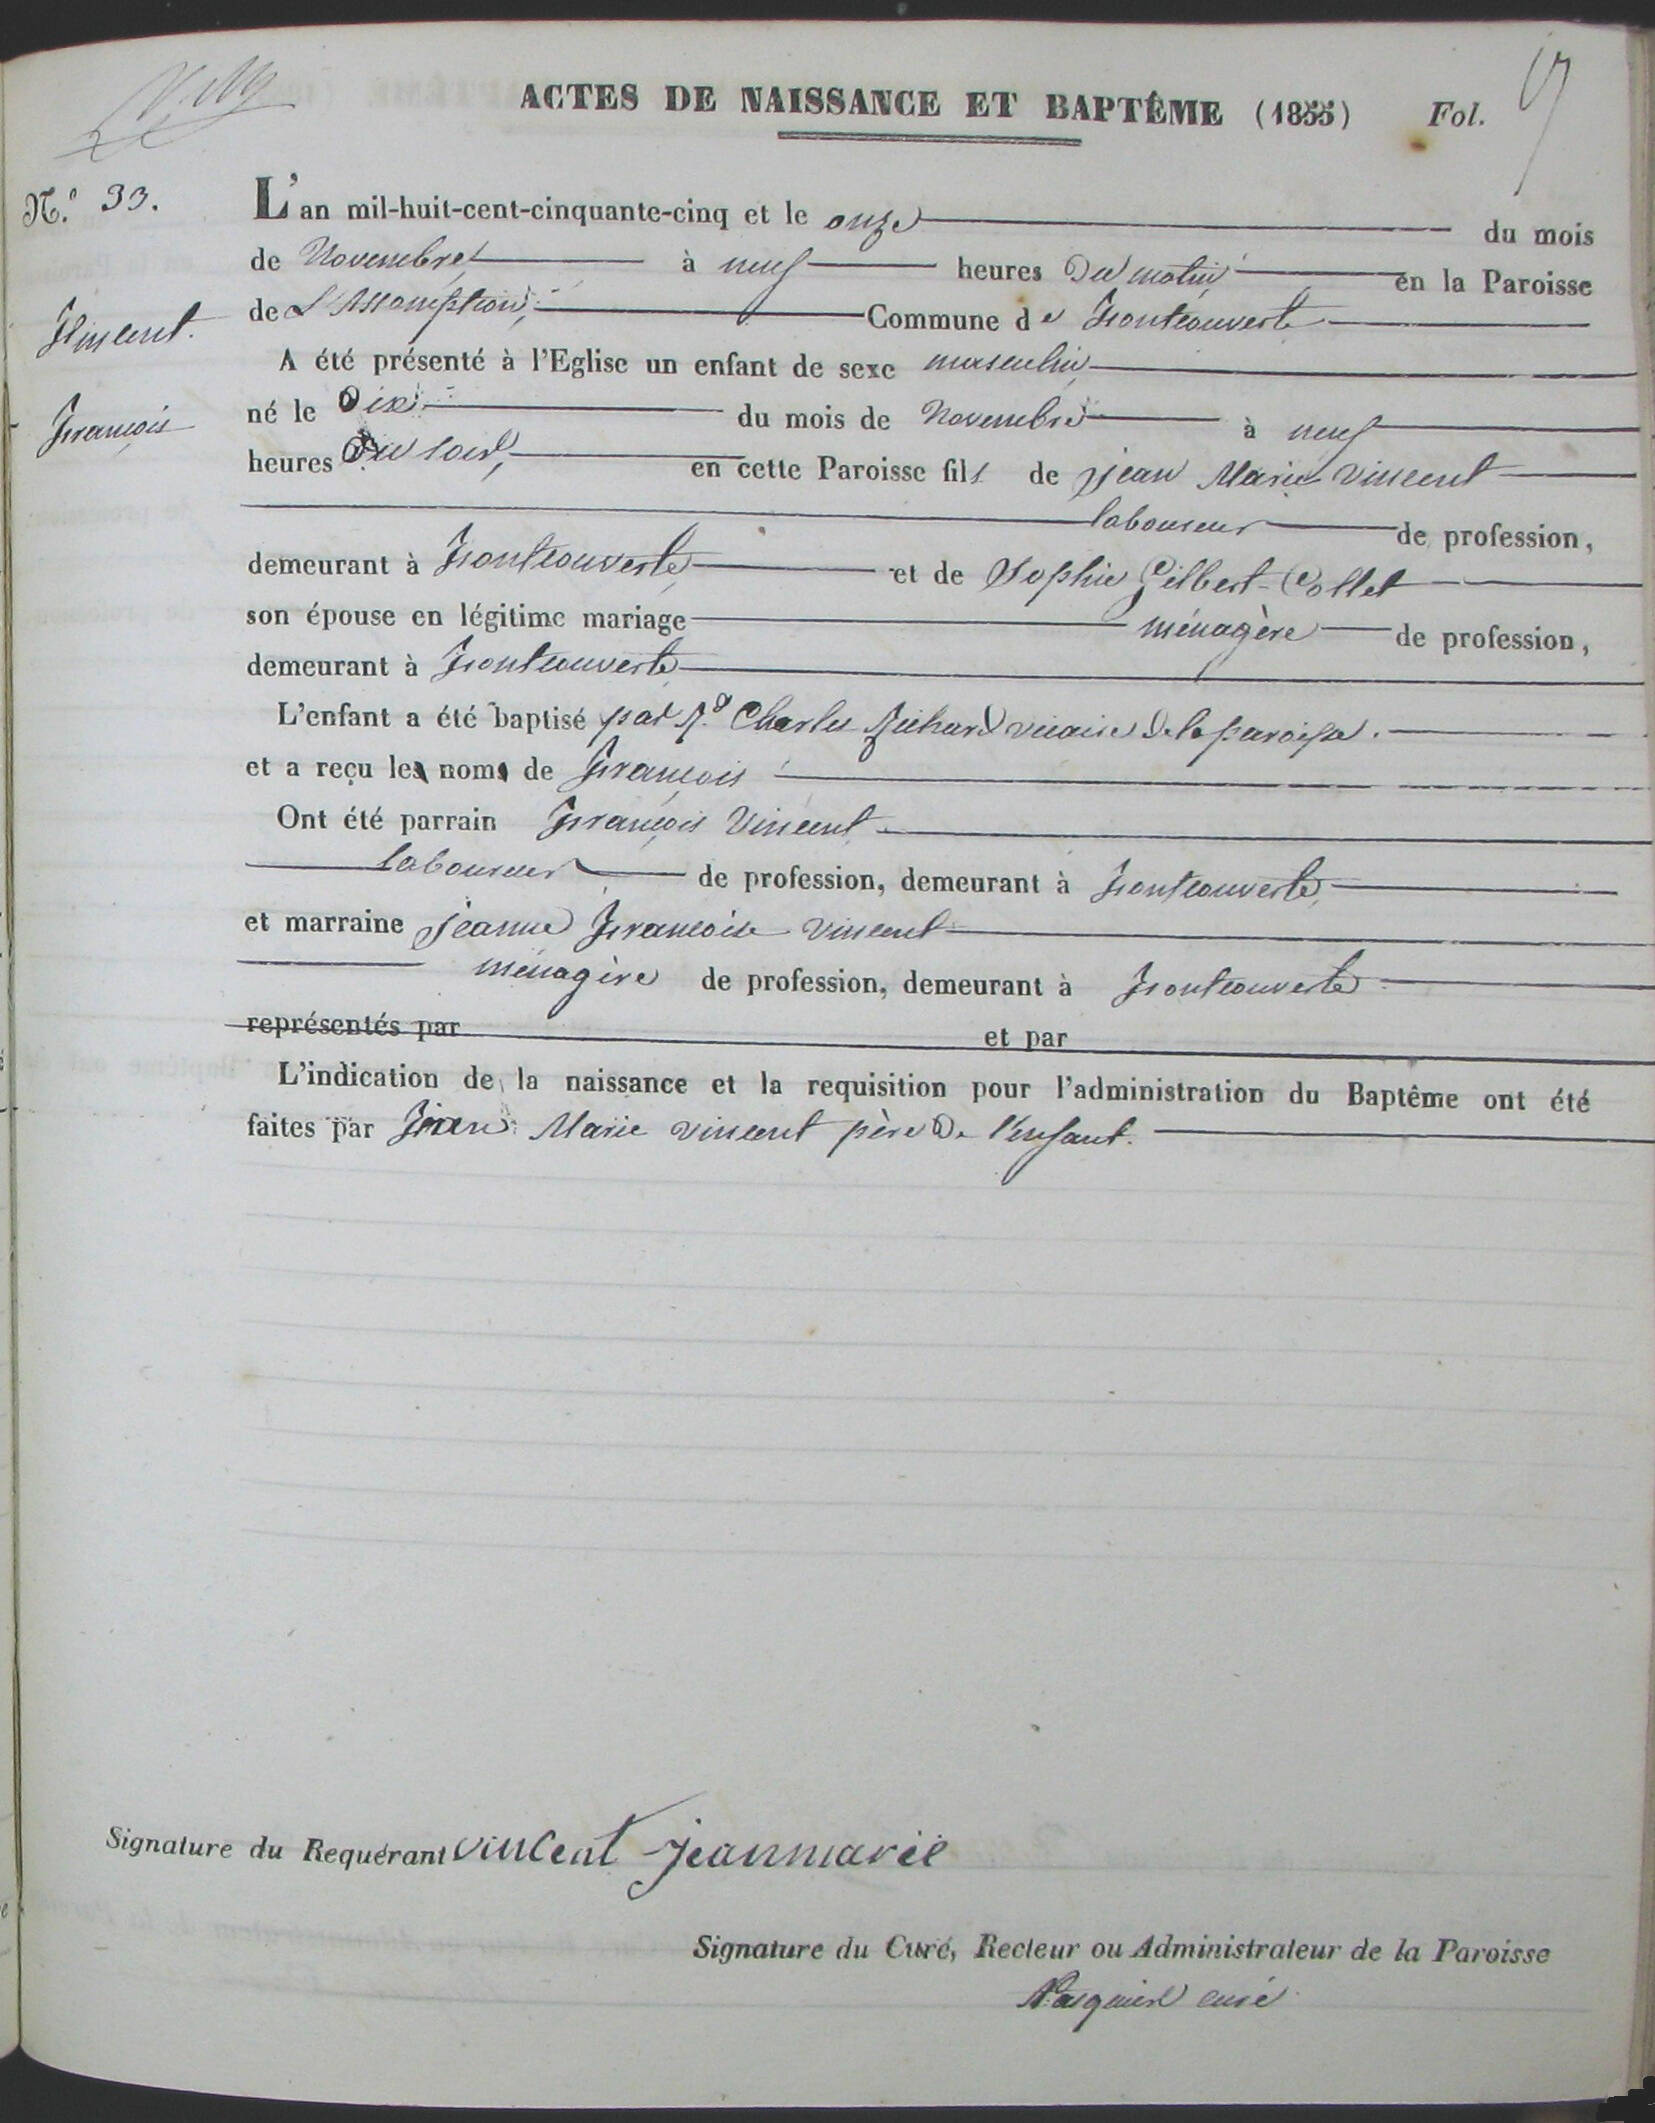 ACTES DE NAISSANCE ET BAPTÊME (1855) Fol.
N.o 33.
Vincent.
François
L'an mil-huit-cent-cinquante-cinq et le onze du mois
de Novembre à neuf heures Du matin en la Paroisse
de L'Assomption, Commune de Fontcouverte
A été présenté à l'Eglise un enfant de sexe masculin
né le Dix du mois de Novembre à neuf
heures Du soir, en cette Paroisse fils de jean Marie Vincent
laboureur de profession,
demeurant à Fontcouverte et de Sophie Gilbert-Collet
son épouse en légitime mariage ménagère de profession,
demeurant à Fontcouverte
L'enfant a été baptisé par R.d Charles Richard vicaire De la paroisse.
et a reçu les noms de François
Ont été parrain François Vincent
laboureur de profession, demeurant à Fontcouverte
et marraine jeanne Françoise Vincent
ménagère de profession, demeurant à Fontcouverte
représentés par et par
L'indication de la naissance et la requisition pour l'administration du Baptême ont été
faites par Jean Marie Vincent père De l'enfant.
Signature du Requérant vincent jeanmarie
Signature du Curé, Recteur ou Administrateur de la Paroisse
curé